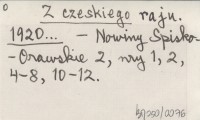 Z czeskiego raju.
1920... — Nowiny Spisko-
-Orawskie 2, nry 1, 2,
4-8, 10-12.